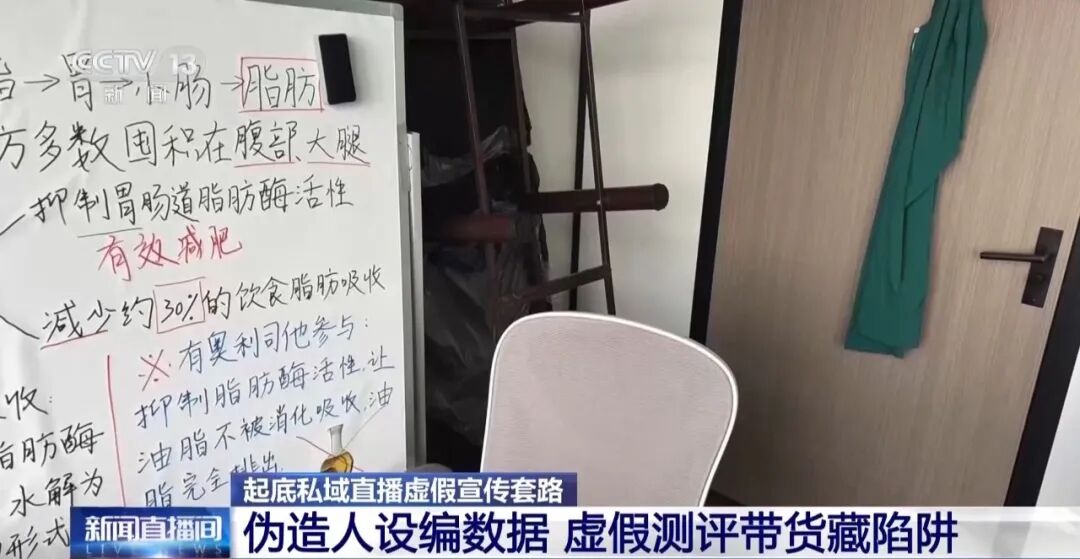 CCTV 13
新闻
→胃→小肠→脂肪
方多数囤积在腹部、大腿
抑制胃肠道脂肪酶活性
有效减肥
减少约30%的饮食脂肪吸收
※有奥利司他参与:
抑制脂肪酶活性,让
油脂不被消化吸收,油
脂完全排出
收:
脂肪酶
水解为
形式
起底私域直播虚假宣传套路
新闻直播间
伪造人设编数据 虚假测评带货藏陷阱